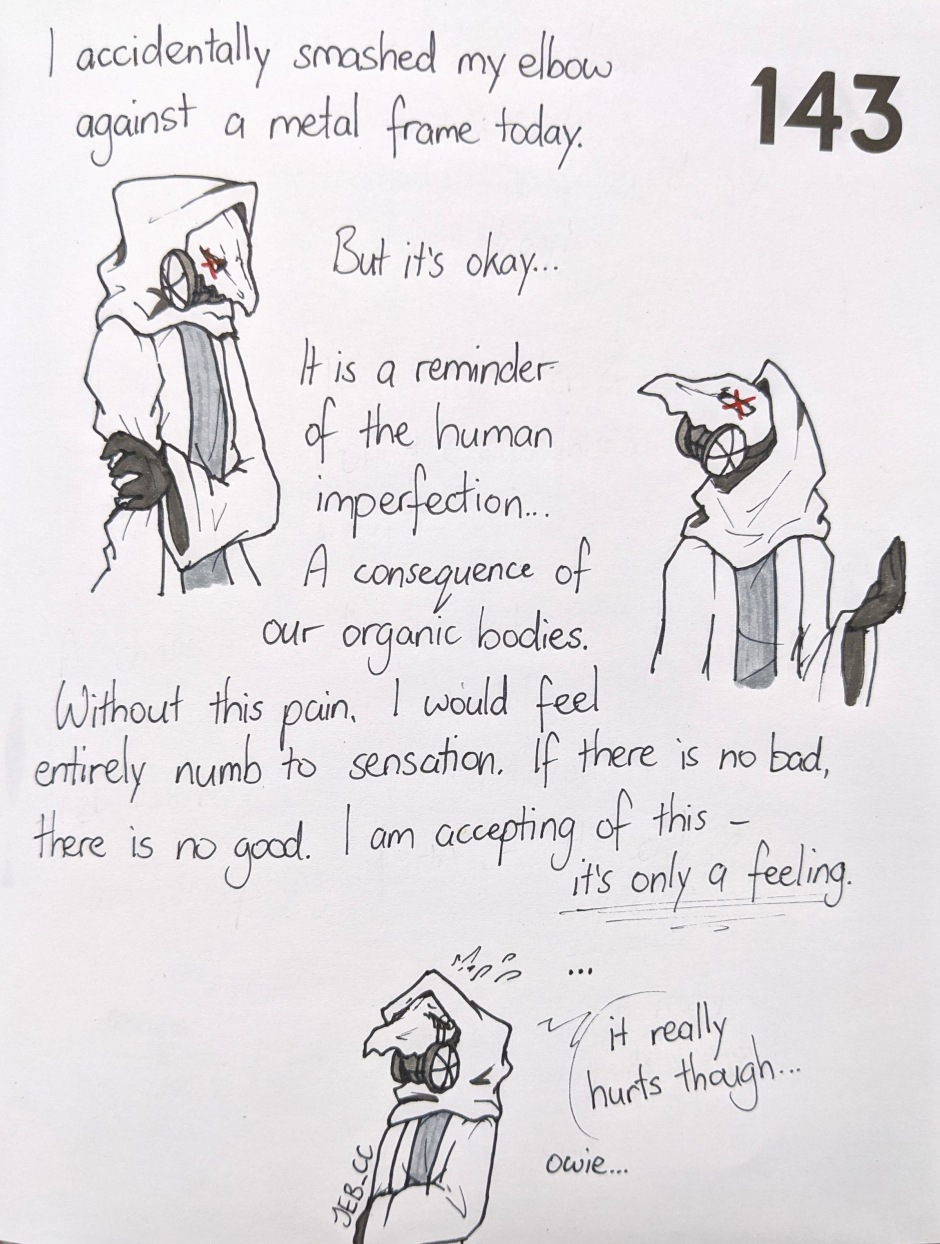 I accidentally smashed my elbow
against a metal frame today.
143
But it's okay...
It is a reminder
of the human
imperfection...
A consequence of
our organic bodies.
Without this pain, I would feel
entirely numb to sensation. If there is no bad,
there is no good. I am accepting of this –
it's only a feeling.
...
it really
hurts though...
owie...
JEB_CC